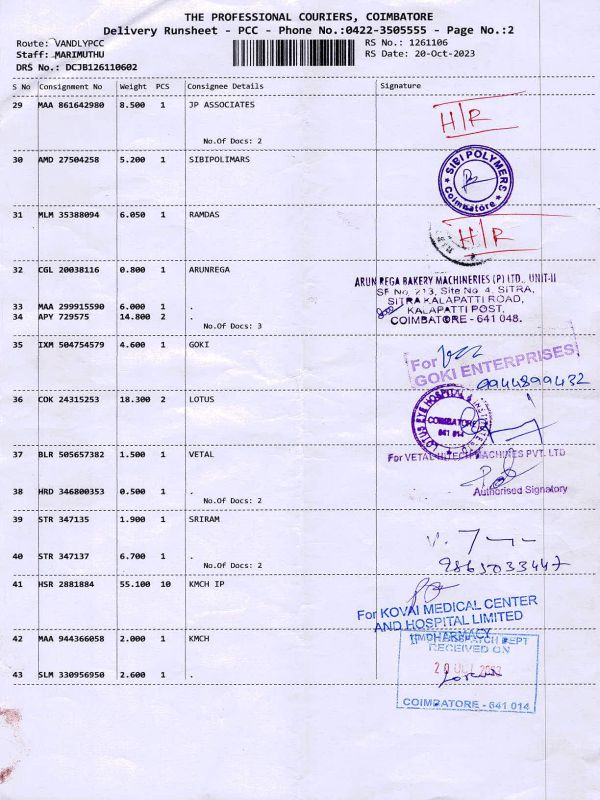 THE PROFESSIONAL COURIERS, COIMBATORE
Delivery Runsheet - PCC - Phone No.:0422-3505555 - Page No.:2
Route: VANDLYPCC
RS No.: 1261106
Staff: MARIMUTHU
RS Date: 20-Oct-2023
DRS No.: DCJB126110602
S No Consignment No Weight PCS Consignee Details Signature
29 MAA 861642980 8.500 1 JP ASSOCIATES
H/R
No.Of Docs: 2
30 AMD 27504258 5.200 1 SIBIPOLIMARS
SIBI POLYMERS
Coimbatore
31 MLM 35388094 6.050 1 RAMDAS
H/R
32 CGL 20038116 0.800 1 ARUNREGA
ARUN REGA BAKERY MACHINERIES (P) LTD., UNIT-II
SF No. 213, Site No. 4, SITRA,
SITRA KALAPATTI ROAD,
KALAPATTI POST,
COIMBATORE - 641 048.
33 MAA 299915590 6.000 1 .
34 APY 729575 14.800 2 .
No.Of Docs: 3
35 IXM 504754579 4.600 1 GOKI
For
GOKI ENTERPRISES
9944899432
36 COK 24315253 18.300 2 LOTUS
LOTUS EYE HOSPITAL & INSTITUTE
COIMBATORE
641 014
37 BLR 505657382 1.500 1 VETAL
For VETAL HITECH MACHINES PVT. LTD
Authorised Signatory
38 HRD 346800353 0.500 1 .
No.Of Docs: 2
39 STR 347135 1.900 1 SRIRAM
40 STR 347137 6.700 1 .
No.Of Docs: 2
9865033447
41 HSR 2881884 55.100 10 KMCH IP
For KOVAI MEDICAL CENTER
AND HOSPITAL LIMITED
PHARMACY
42 MAA 944366058 2.000 1 KMCH
DEPT
RECEIVED ON
43 SLM 330956950 2.600 1 .
COIMBATORE - 641 014